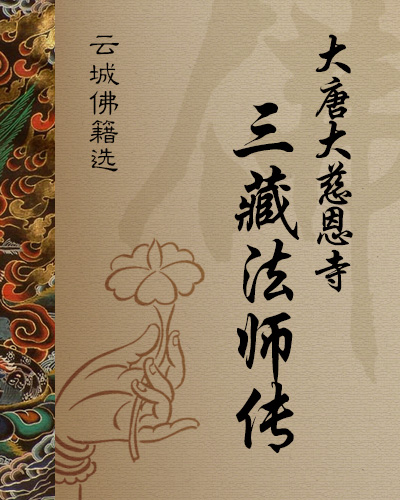 大唐大慈恩寺
三藏法师传
云城佛籍选